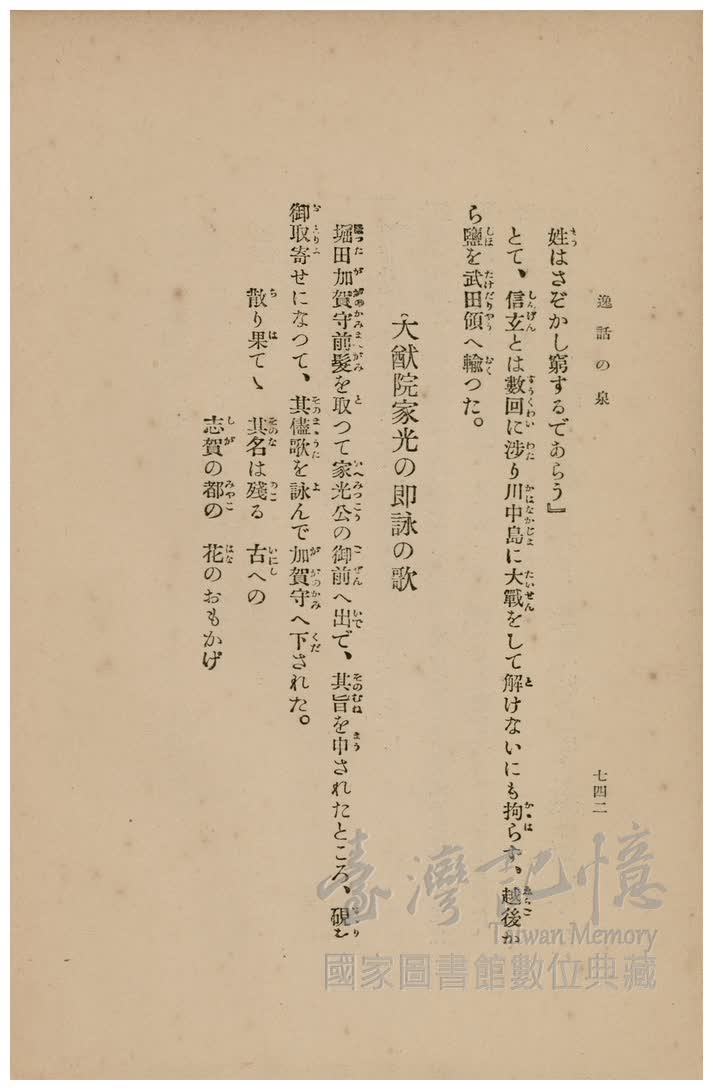 逸話の泉
七四二
姓はさぞかし窮するであらう』
とて、信玄とは數回に涉り川中島に大戰をして解けないにも拘らず、越後か
ら鹽を武田領へ輸つた。
大猷院家光の即詠の歌
堀田加賀守前髮を取つて家光公の御前へ出で、其旨を申されたところ、硯を
御取寄せになつて、其儘歌を詠んで加賀守へ下された。
散り果てゝ 其名は殘る 古への
志賀の都の 花のおもかげ
臺灣記憶
Taiwan Memory
國家圖書館數位典藏